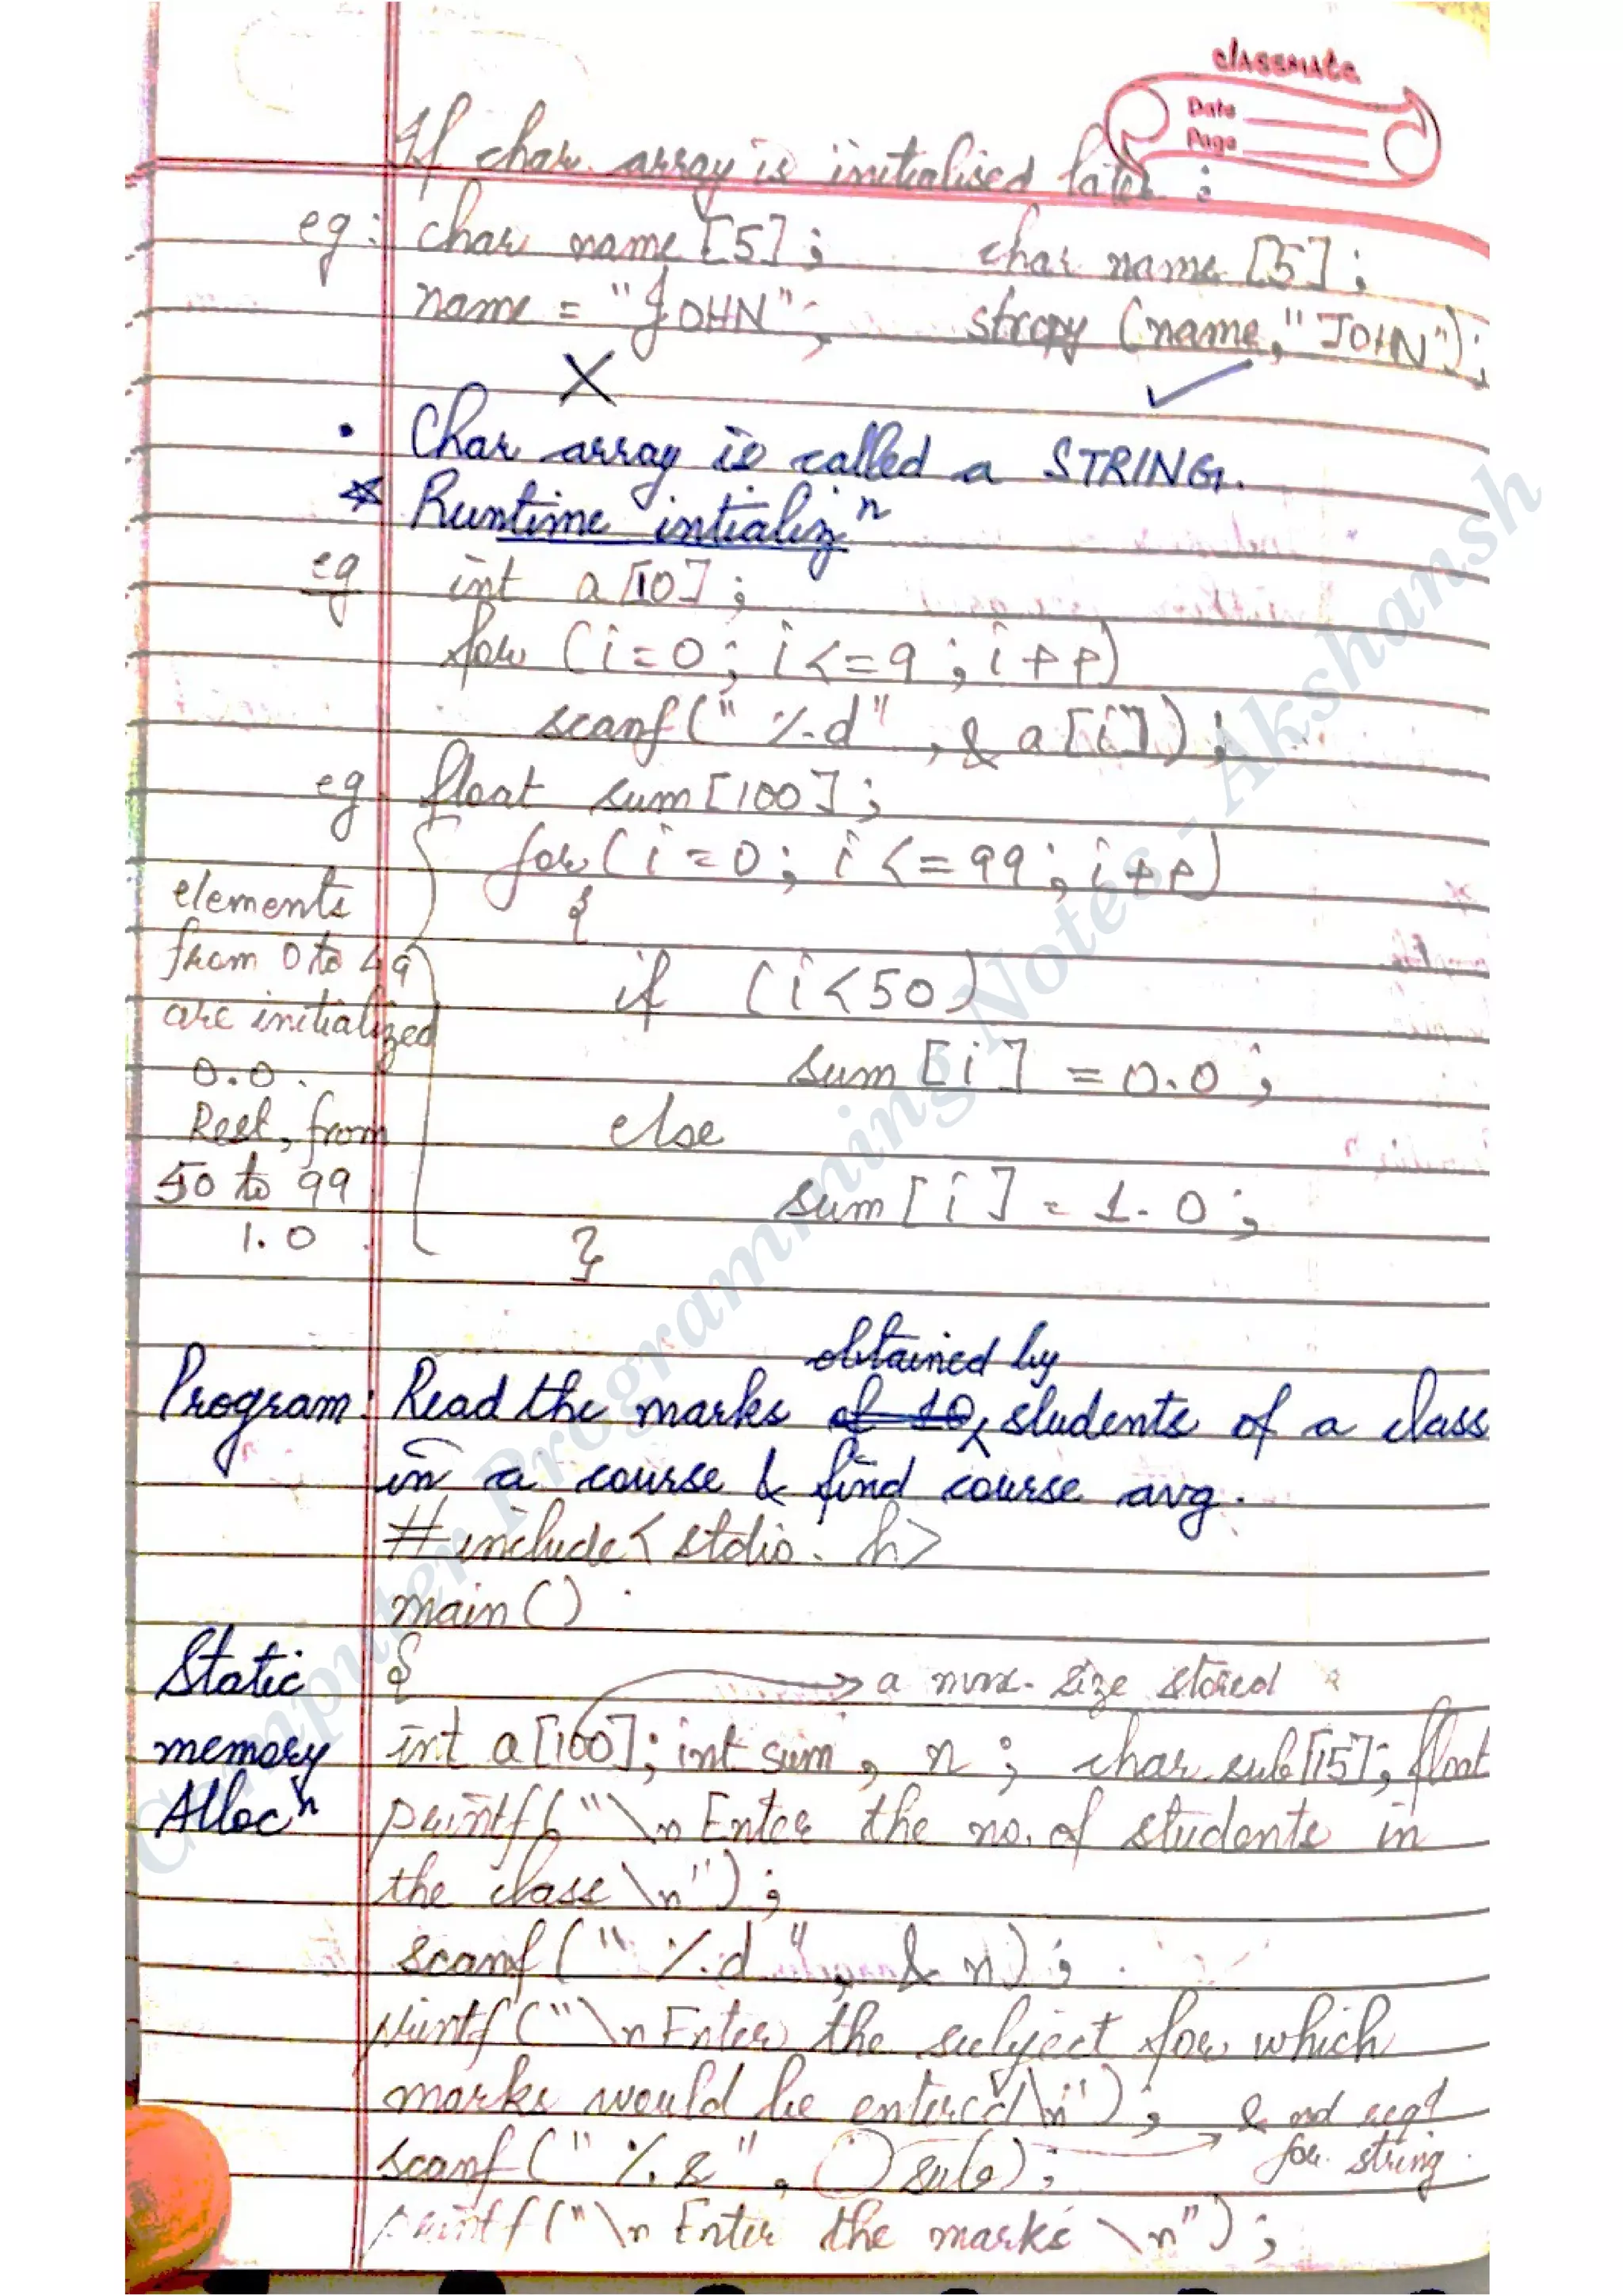 classmate
Date
Page
If char array is initialised later :
eg: char name [5]; char name [5];
name = "JOHN"; strcpy (name, "JOHN");
X ✓
• Char array is called a STRING.
* Runtime intializⁿ
eg int a[10];
for (i=0; i<=9; i++)
scanf("%d", &a[i]);
eg float sum[100];
for(i=0; i<=99; i++)
{
if (i<50)
sum[i] = 0.0;
else
sum[i] = 1.0;
}
elements
from 0 to 49
are initialized
0.0.
Rest, from
50 to 99
1.0
obtained by
Program: Read the marks of 10 students of a class
in a course & find course avg.
#include<stdio.h>
main()
Static
memory
Allocⁿ
{ → a max. size stored
int a[100]; int sum, n; char sub[15]; float
printf("\n Enter the no. of students in
the class \n");
scanf("%d", &n);
printf("\n Enter the subject for which
marks would be enter'd\n"); & not reqd
scanf("%s", sub); → for string.
printf("\n Enter the marks \n");
Computer Programming Notes - Akshansh